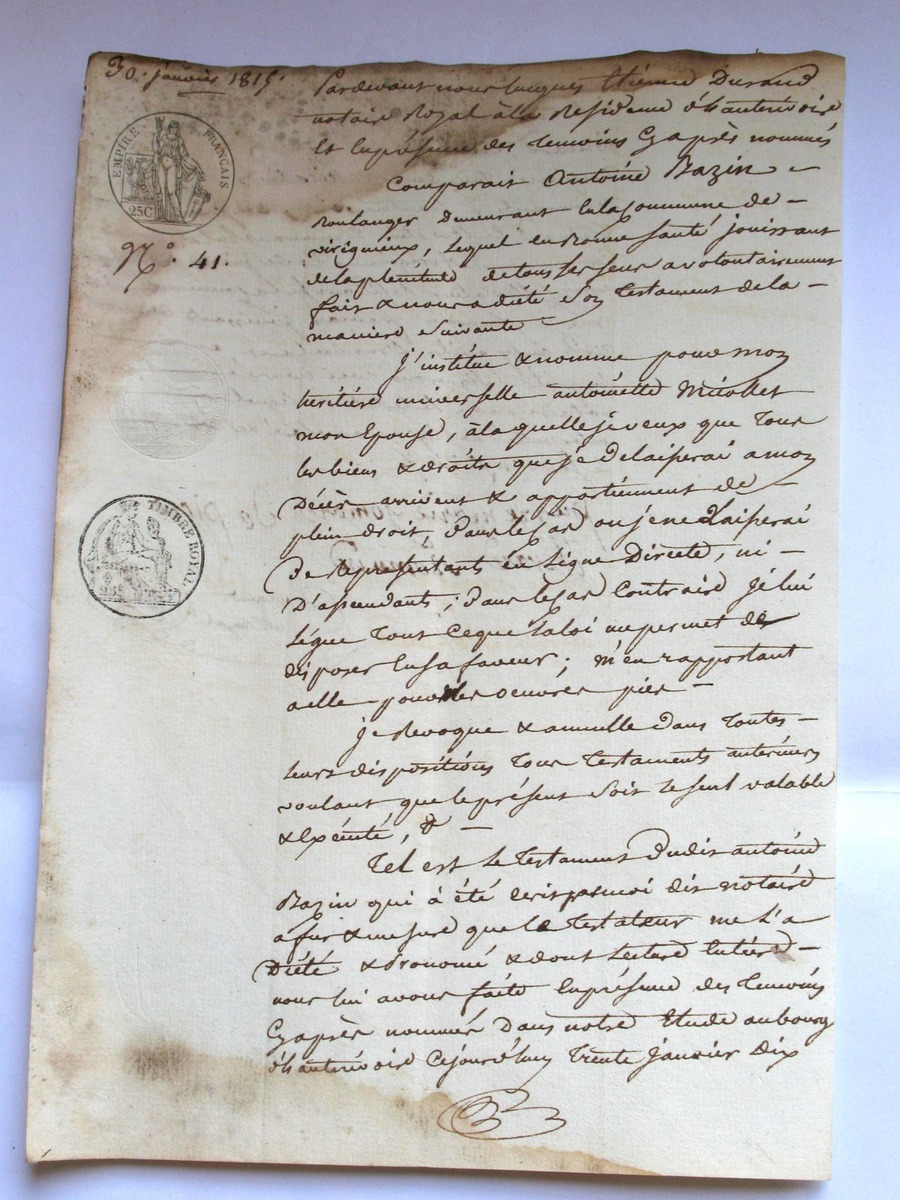 30. janvier 1815.
EMPIRE FRANÇAIS
25C
N.° 41.
TIMBRE ROYAL
Pardevant nous Jacques Etienne Durand
notaire Royal à la Residence
Et en présence des temoins Cy après nommés
Comparait Antoine Bazin
Boulanger demeurant en la Commune de
virignieux, lequel en Bonne Santé jouissant
de la plenitude de tous ses sens a volontairement
fait & nous a dicté Son Testament de la
maniere Suivante
J'institue & nomme pour mon
heritière universelle antoinette Micollet
mon Epouse, à la quelle je veux que Tous
les biens & droits que je delaisserai a mon
Décès arrivent & appartiennent de
plein droit, Dans le Cas ou je ne Delaisserai
De Représentants en Ligne Directe, ni
D'ascendants; Dans le Cas Contraire je lui
Légue Tout Ce que la loi me permet de
disposer En sa faveur; m'en rapportant
a elle pour les oeuvres pies
je Revoque & annulle Dans Toutes
leurs dispositions Tous Testaments antérieurs
voulant que le présent Soit le Seul valable
& Exécuté, &
Tel est Le Testament Dudit antoine
Bazin qui à été Ecrit par moi dit notaire
a fur & mesure que Le Testateur me l'a
Dicté & Prononcé & dont Lecture Entière
nous lui avons faite En présence des Temoins
Cy après nommés Dans notre Etude au bourg
Cejourd'huy Trente Janvier Dix